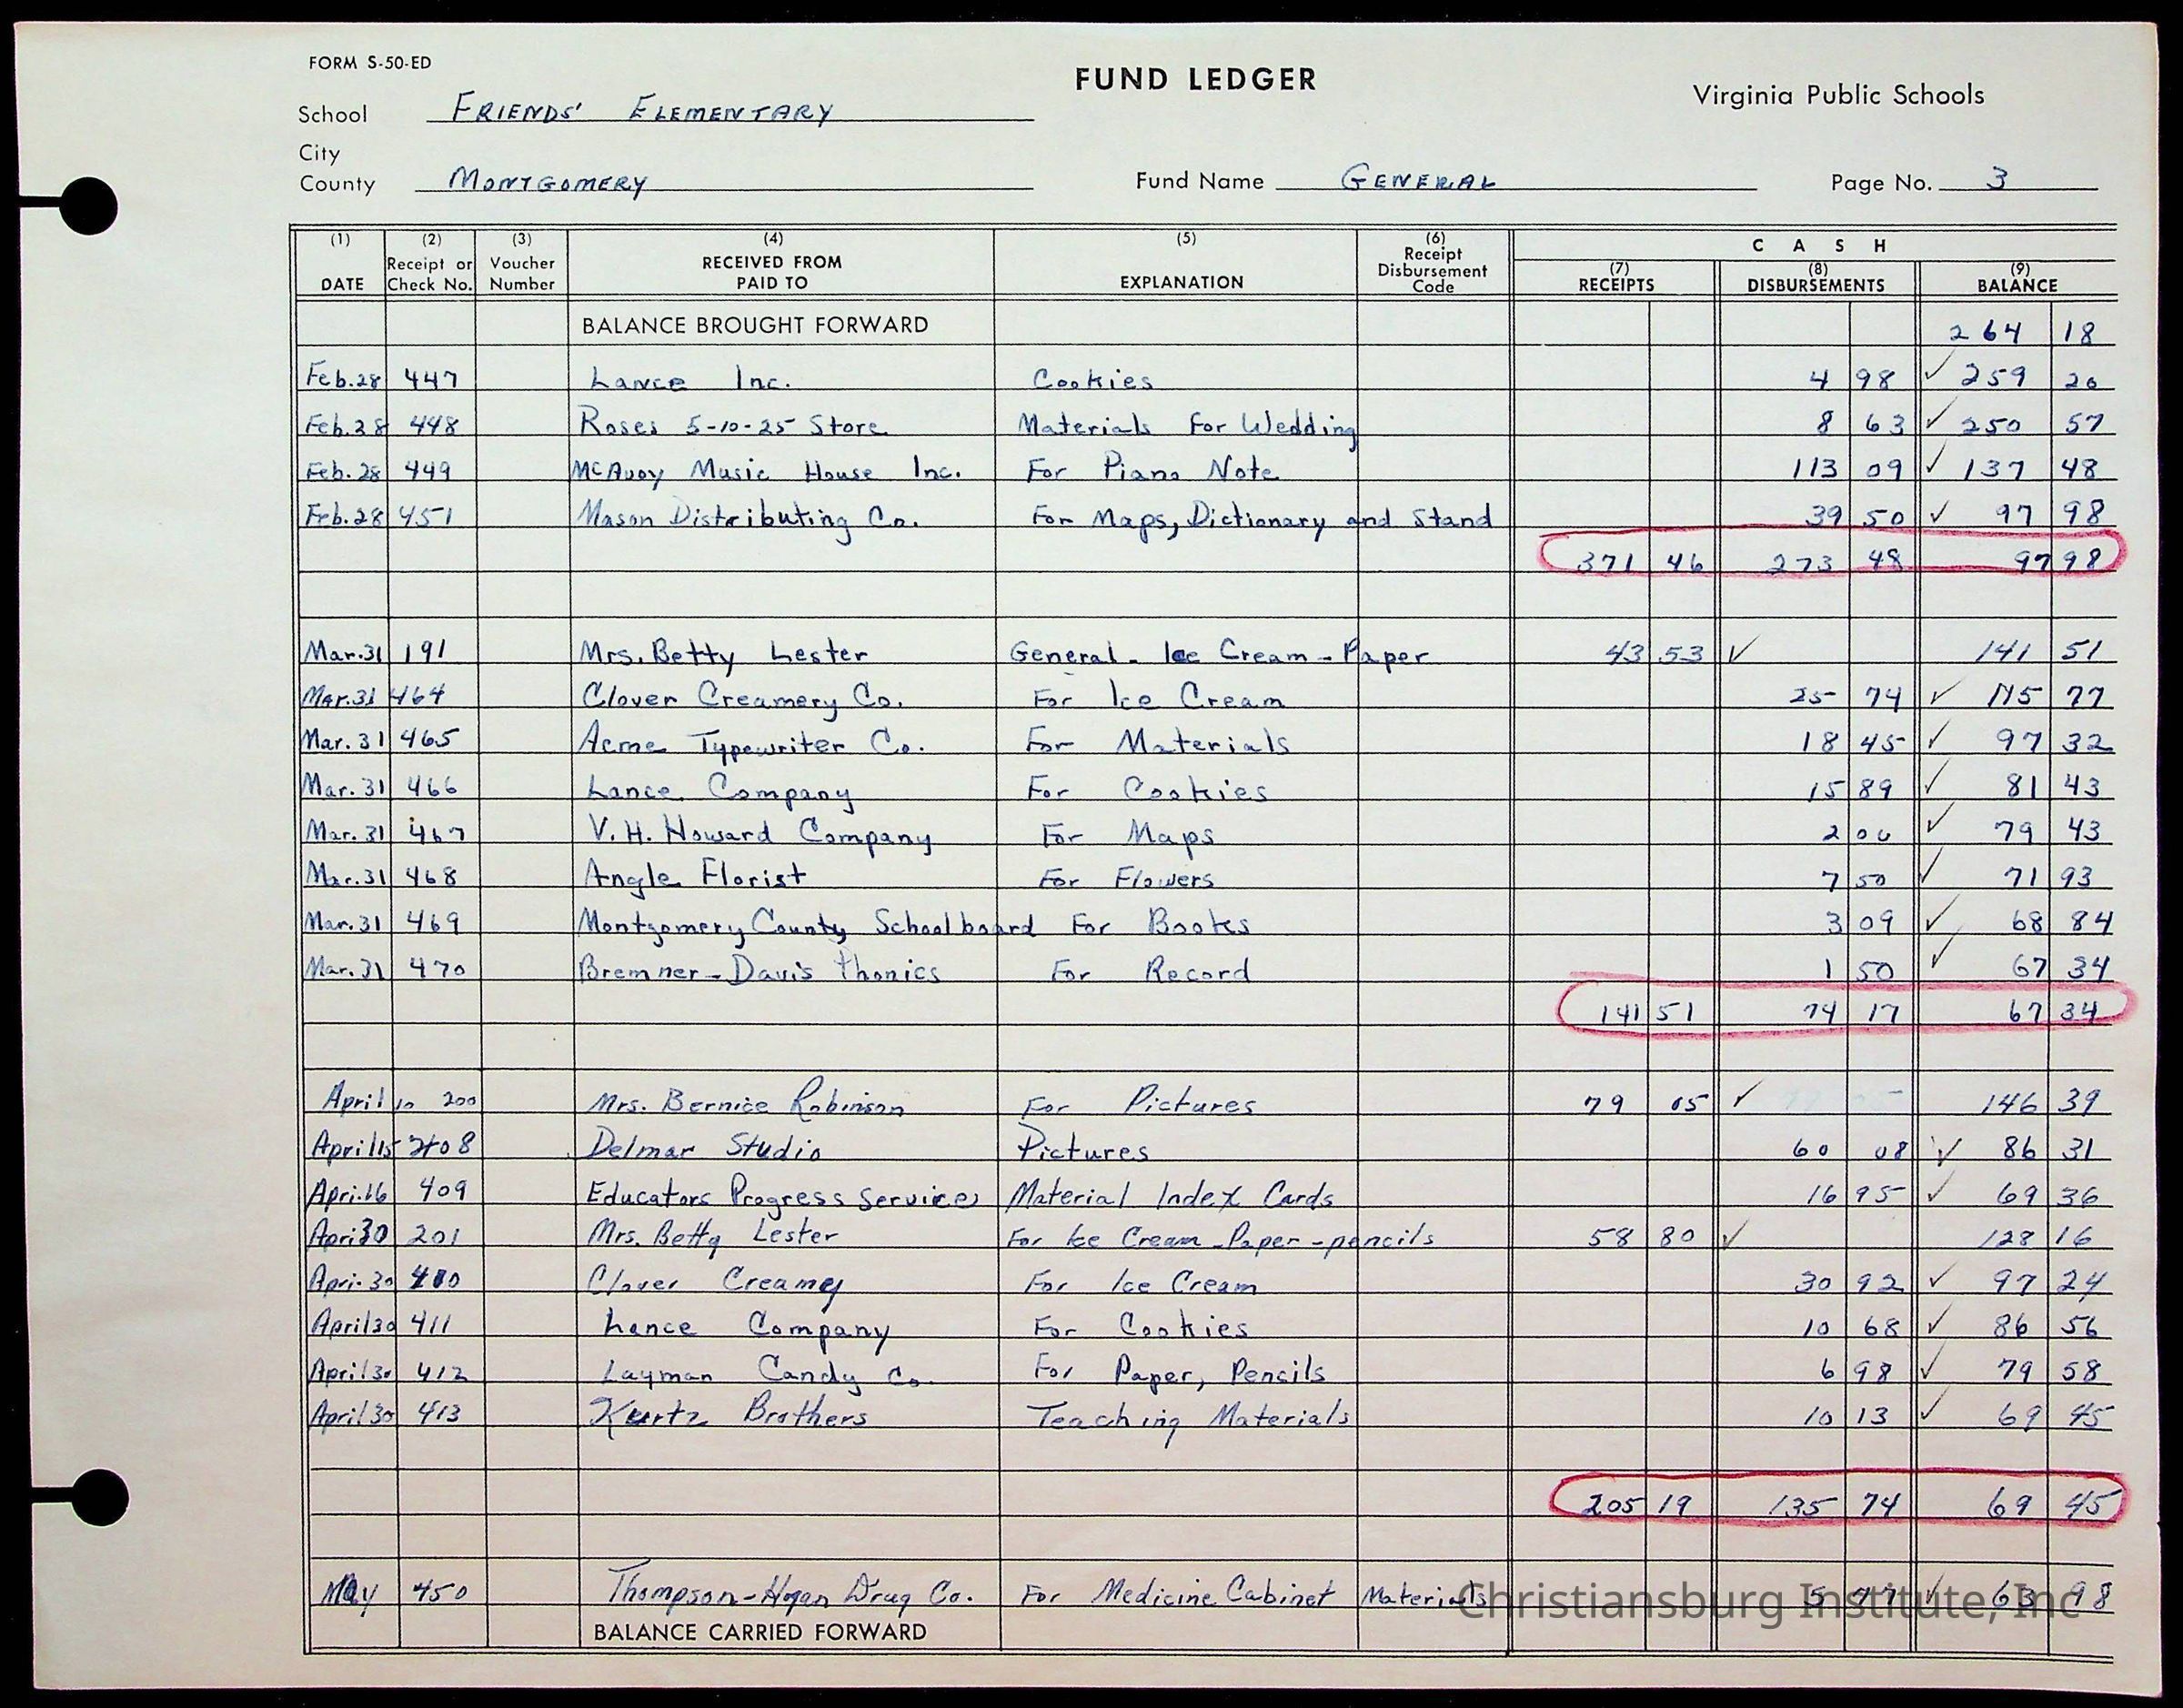 FORM S-50-ED
FUND LEDGER
Virginia Public Schools
School FRIENDS' ELEMENTARY
City
County MONTGOMERY Fund Name GENERAL Page No. 3
(1) DATE (2) Receipt or Check No. (3) Voucher Number (4) RECEIVED FROM PAID TO (5) EXPLANATION (6) Receipt Disbursement Code CASH (7) RECEIPTS (8) DISBURSEMENTS (9) BALANCE
BALANCE BROUGHT FORWARD 264 18
Feb.28 447 Lance Inc. Cookies 4 98 ✓ 259 20
Feb.28 448 Roses 5-10-25 Store Materials For Wedding 8 63 ✓ 250 57
Feb.28 449 McAvoy Music House Inc. For Piano Note 113 09 ✓ 137 48
Feb.28 451 Mason Distributing Co. For Maps, Dictionary and Stand 39 50 ✓ 97 98
371 46 273 48 97 98
Mar.31 191 Mrs. Betty Lester General - Ice Cream - Paper 43 53 ✓ 141 51
Mar.31 464 Clover Creamery Co. For Ice Cream 25 74 ✓ 115 77
Mar.31 465 Acme Typewriter Co. For Materials 18 45 ✓ 97 32
Mar.31 466 Lance Company For Cookies 15 89 ✓ 81 43
Mar.31 467 V.H. Howard Company For Maps 2 00 ✓ 79 43
Mar.31 468 Angle Florist For Flowers 7 50 ✓ 71 93
Mar.31 469 Montgomery County Schoolboard For Books 3 09 ✓ 68 84
Mar.31 470 Bremner-Davis Phonics For Record 1 50 ✓ 67 34
141 51 74 17 67 34
April 10 200 Mrs. Bernice Robinson For Pictures 79 05 ✓ 146 39
April 15 408 Delmar Studio Pictures 60 08 ✓ 86 31
Apri.16 409 Educators Progress Service Material Index Cards 16 95 ✓ 69 36
Apri 30 201 Mrs. Betty Lester For Ice Cream - Paper - pencils 58 80 ✓ 128 16
Apri. 30 410 Clover Creamey For Ice Cream 30 92 ✓ 97 24
April 30 411 Lance Company For Cookies 10 68 ✓ 86 56
April 30 412 Layman Candy Co. For Paper, Pencils 6 98 ✓ 79 58
April 30 413 Kurtz Brothers Teaching Materials 10 13 ✓ 69 45
205 19 135 74 69 45
May 450 Thompson-Hogan Drug Co. For Medicine Cabinet Materials 5 47 ✓ 63 98
BALANCE CARRIED FORWARD
Christiansburg Institute, Inc